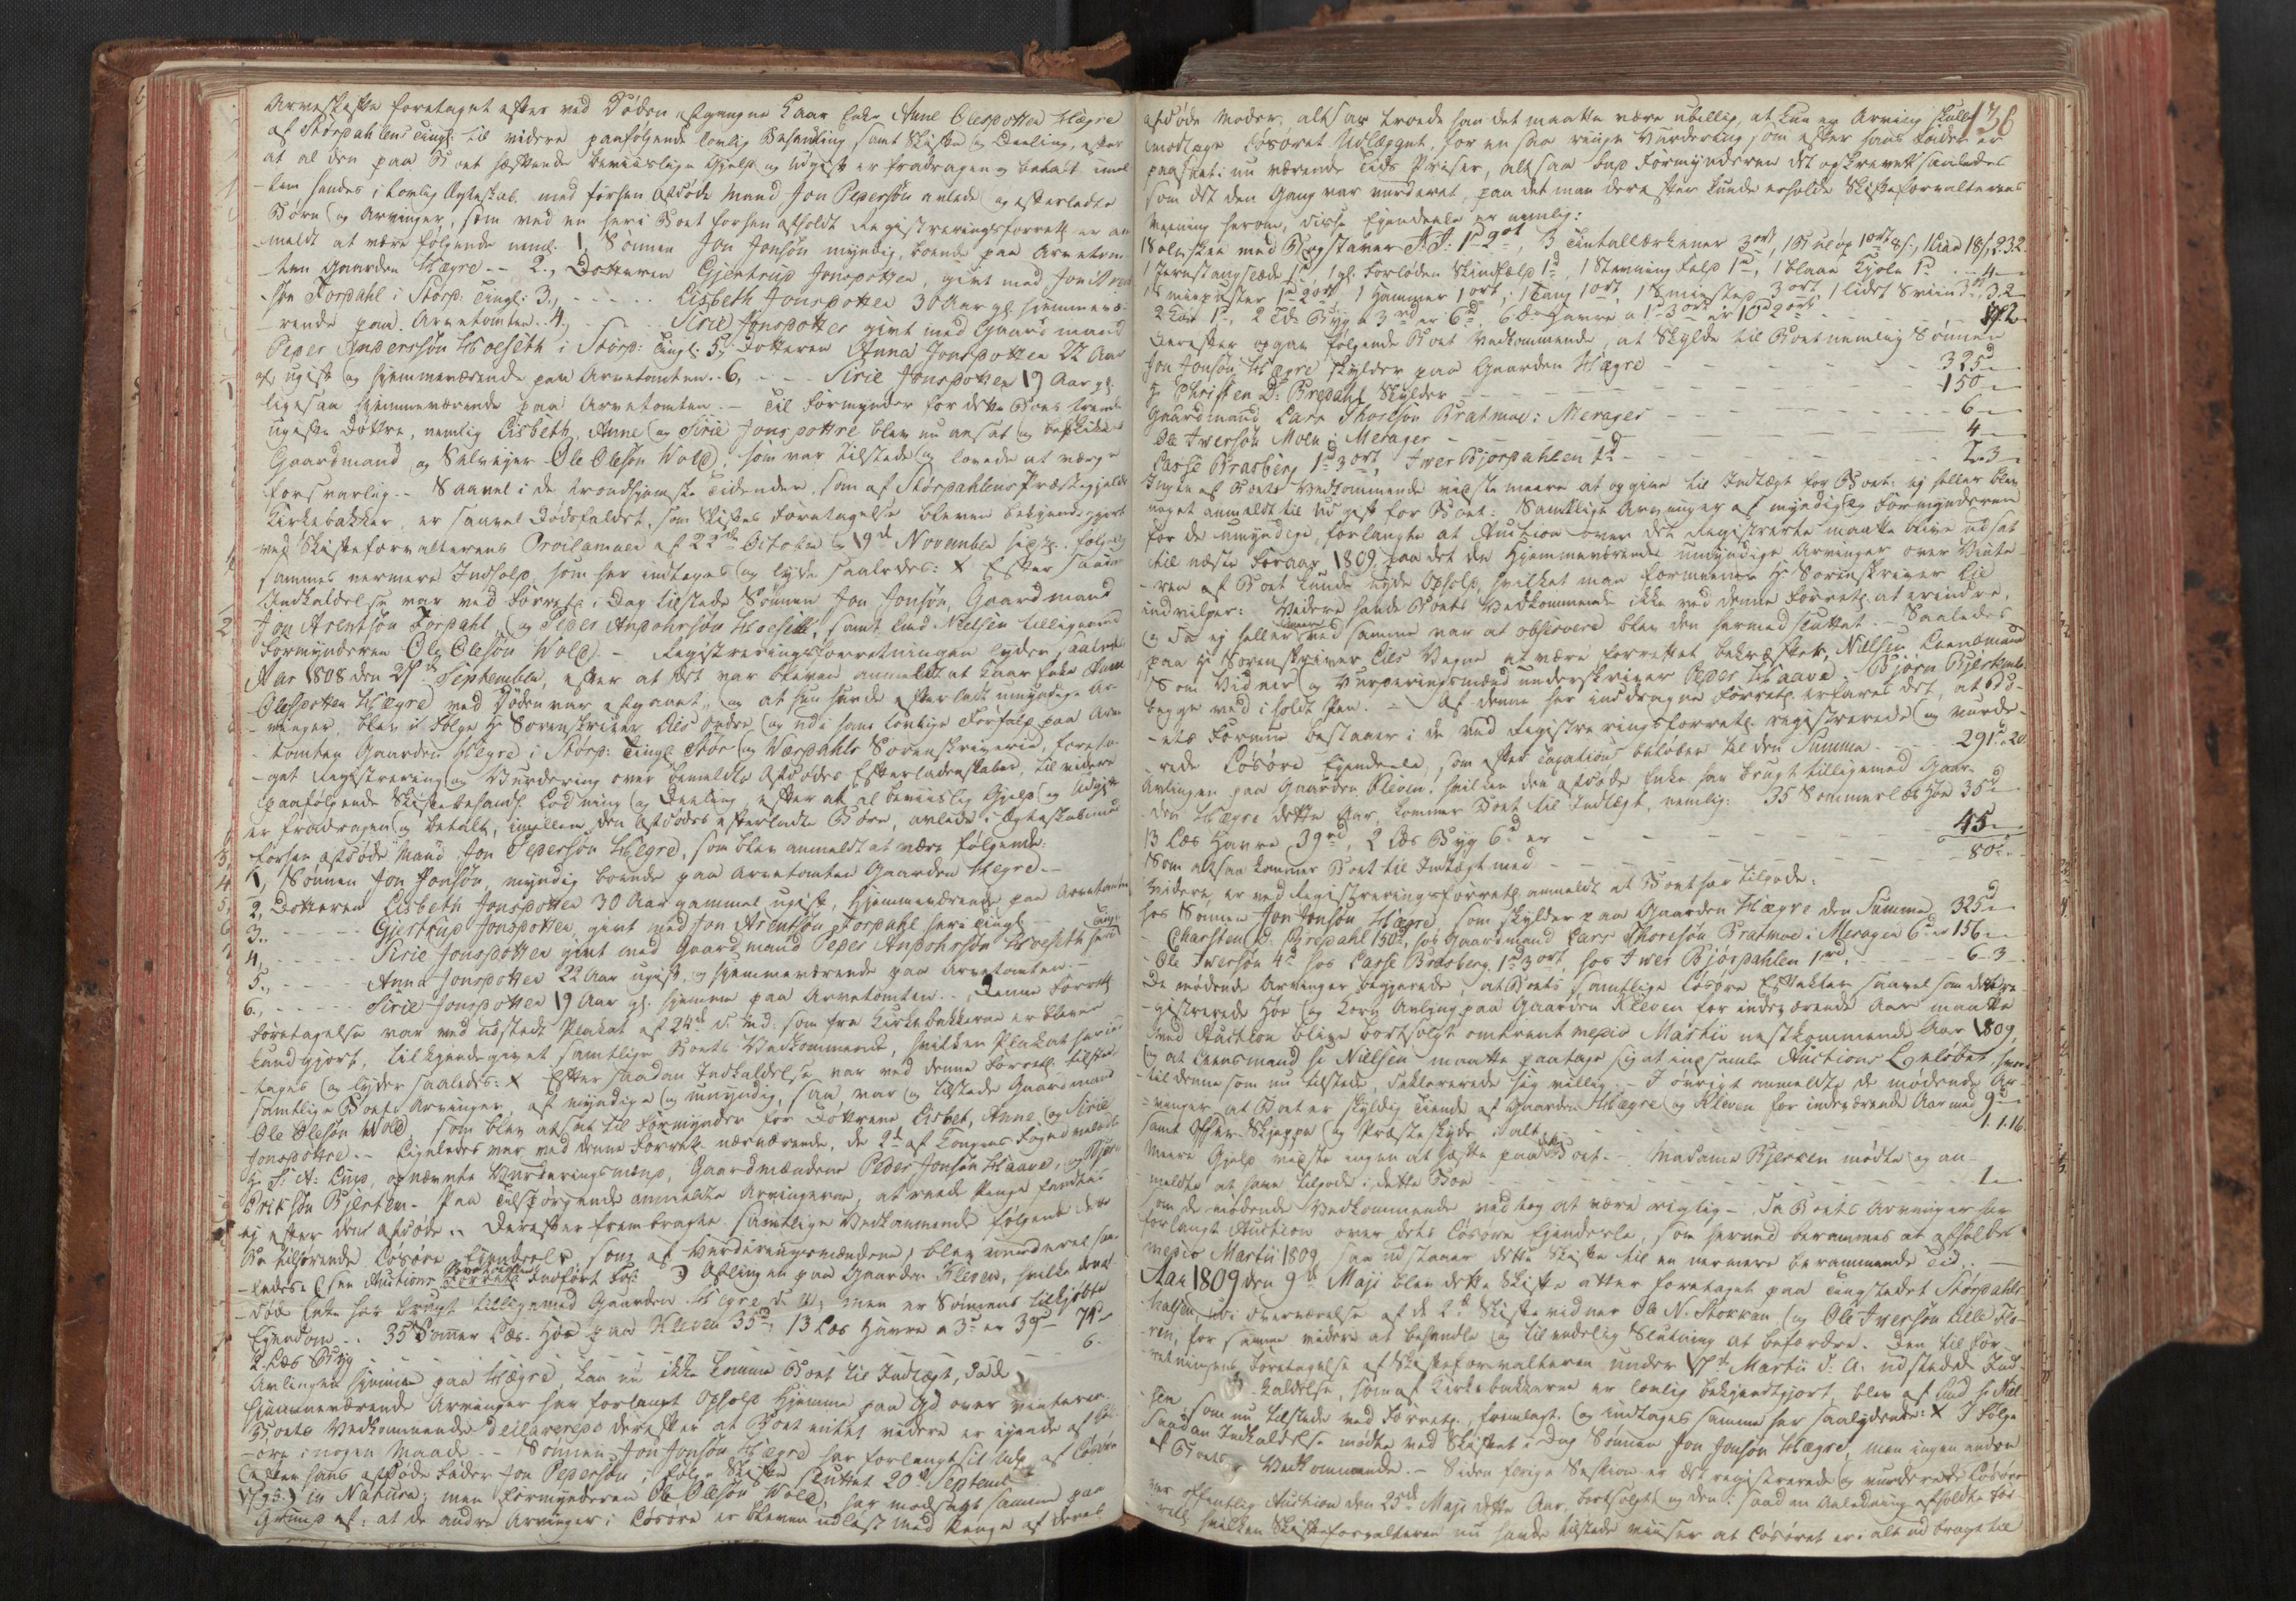 Arveskifte foretaget efter ved Döden afgangne Kaar Enke Anne Olesdotter Hægre
af Størdahlens Tingl: til videre paafølgende lovlig Behandling samt Skifte og Deeling, efter
at al den paa Boet hæftende beviislige Gjeld og Udgift er fradragen og betalt imel-
lem hendes i lovlig Ægteskab med forhen afdöde Mand Jon Pedersøn avlede og efterladte
Börn og Arvinger, som ved en her i Boet forhen afholdt Registreringsforrett er an
meldt at være følgende neml. 1, Sönnen Jon Jonsøn myndig, boende paa Arvetom
ten Gaarden Hægre -- 2., Dotteren Gjertrup Jonsdotter, givt med Jon Arent
søn Fordahl i Størd: Tingl: 3., - - - Lisbeth Jonsdotter 30 Aar gl. hjemmevæ-
rende paa Arvetomten. 4. Siric Jonsdotter givt med Gaard mand
Peder Andersøn Hoeseth i Størd: Tingl: 5, Dotteren Anna Jonsdotter 22 Aar
gl, ugift og hjemmeværende paa Arvetomten. 6, - - - Siric Jonsdotter 19 Aar gl.
ligesaa hjemmeværende paa Arvetomten. - Til Formynder for dette Boes trende
ugifte Döttre, nemlig Lisbeth, Anne og Siric Jonsdottre blev nu ansat og beskikket
Gaardmand og Selveyer Ole Olesøn Wold, som var tilstede og lovede at værge
forsvarlig. - Saavel i de trondhjemske Tidender som af Størdahlens Præstegjelds
Kirkebakker, er saavel Dödsfaldet, som Skiftes Foretagelse bleven bekjendtgjort
ved Skifteforvalterens Proclamaer af 22de October og 19de November
sammes nermere Indhold, som her indtages og lyde saaledes: X Efter saadan
Indkaldelse var ved Forrett. i Dag tilstede Sönnen Jon Jonsøn, Gaardmand
Jon Arentsøn Fordahl og Peder Andohrsøn Hoeseth, samt Lud Nielsen tilligemed
Formynderen Ole Olesøn Wold. - Registreringsforretningen lyder saaledes
Aar 1808 den 27de September, efter at det var bleven anmeldt at Kaar Enke Anne
Olesdotter Hægre ved Döden var afganet, og at hun havde efterladt umyndige Ar-
vinger, blev i Følge Hr Sorenskriver Lies Ordre og udi hans lovlige Forfald paa Arve
tomten Gaarden Hægre i Størd: Tingl. Stør og Værdahls Sorenskriverie, foreta-
get Registrering og Vurdering over bemeldte Afdödes Efterladenskaber, til videre
paafølgende Skiftebehandl. Lodning og Deeling, efter at al beviislig Gjeld og Udgift
er fradragen og betalt, imellem den Afdödes efterladte Börn, avlede i Ægteskab med
forhen afdöde Mand Jon Pedersøn Hegre, som blev anmeldt at være følgende:
1, Sönnen Jon Jonsøn, myndig boende paa Arvetomten Gaarden Hegre. -
2, Dotteren Lisbeth Jonsdotter 30 Aar gammel ugift, hjemmeværende paa Arvetomten
3.. - - - Gjertrup Jonsdotter, givt med Jon Arentsøn Fordahl her i Tingl. -
4, - - - Siric Jonsdotter givt med Gaardmand Peder Andohrsøn Hoeseth her i Tingl.
5., - - - Anna Jonsdotter 22 Aar ugift, og hjemmeværende paa Arvetomten. -
6., - - - Siric Jonsdotter 19 Aar gl. hjemme paa Arvetomten. - Denne Forrett
Foretagelse var ved udstedt Plakat af 24de d. Md. som fra Kirkebakkerne er bleven
kundgjort, tilkjendegivet samtlige Boets Vedkommende, hvilken Plakat her ind
tages og lyder saaledes: X Efter saadan Indkaldelse var ved denne Forrett. tilstede
samtlige Boets Arvinger, af myndige og umyndig, saa, var og tilstede Gaardmand
Ole Olesøn Wold som blev ansat til Formynder for Dottrene Lisbet, Anne og Siric
Jonsdottre. - Ligeledes var ved denne Forrett. nærværende, de 2de af Kongens Foged
Hr. A: Lund, opnævnte Vurderingsmænd, Gaardmændene Peder Jonsøn Haave, og Bjørn
Eriksøn Bjerken. - Paa Tilspørgende anmeldte Arvingerne, at rede Penge fandtes
ej efter den afdöde.. Derefter frembragte samtlige Vedkommende følgende dette
Boe tilhørende Løsøre Ejendeele som af Vurderingsmændene blev vurderet saa-
ledes: (see Auctions Forrett. Indført Fol: ) Aflingen paa Gaarden Kleven, hvilke den af
döde Enke har brugt tilligemed Gaarden Hegre d. A, men er Sönnens tilkjøbte
Ejendom. - 35 Sommer Læs Høe paa Kleven 35 d, 13 Læs Havre a 3 d er 39 d 74 d
2 Læs Byg - - - - - 6.
Avlingen hjemme paa Hægre, kan nu ikke komme Boet til Indtægt, da de
hjemmeværende Arvinger har forlangt Ophold hjemme paa Gd over Vinteren.
Boets Vedkommende declarerede derefter at Boet intet videre er ejende af Løs-
øre i nogen Maade. - Sönnen Jon Jonsøn Hægre har forlangt sit Udl. af Løsøre
efter hans afdöde Fader Jon Pedersøn, i Følge Skifte sluttet 20de Septemb
1795.) in Natura; men Formynderen Ole Olesøn Wold, har modsagt samme paa
Grund af: at de andre Arvinger i Løsøre er bleven udløst med Penge af deres
136
afdöde Moder, altsaa troede han det maatte være ubillig, at kun en Arving skulle
modtage Løsøret Udlægget, for en saa ringe Vurdering som efter hans Fader er
paasat i nu værende Tids Priser, altsaa bad Formynderen det opskrevet saaledes
som det den Gang var vurderet, paa det man derefter kunde erholde Skifteforvalterens
Meening herom, disse Ejendeele er nemlig:
1 Sølvskee med Bogstaver J. J: 1d 2ort, 3 Tintallerkener 3ort, 1 Ølbolle 1ort 8s, 1 Kar 18s, 2.3.2
1 Jernstangslæde 1d, 1 gl. Forløden Skindfeld 1d, 1 Stevning Feld 1d, 1 blaae Kjole 1d - - 4 -
1 Smiepuster 1d 2ort, 1 Hammer 1ort, 1 Tang 1ort, 1 Smiested 3ort, 1 lidet Sviin 3ort, 3.2
2 Kar 1d, 2 Tdr Byg a 3rd er 6d, 6 dr Havre a 1d 3ort er 10d 2ort - - - 17.2
Derefter opgav følgende Boet Vedkommende, at skylde til Boet nemlig Sönnen
Jon Jonsøn Hægre skylder paa Gaarden Hægre - - - 325d
Hr Christen D: Bredahl Skylder - - - 150 -
Gaardmand Lars Thoresøn Bratmoe i Merager - - - 6 -
Ole Iversøn Moen i Merager - - - 4 -
Lasse Brasberg 1d 3ort, Iver Bjørdahlen 1d - - - 2.3
Ingen af Boets Vedkommende vidste meere at opgive til Indtægt for Boet. ej heller blev
noget anmeldt til Udgift for Boet: Samtlige Arvinger af myndig og Formynderen
for de umyndige, forlangte at Auction over det Registrerte maatte blive udsat
til næste Foraar 1809, paa det de hjemmeværende umyndige Arvinger over Vinte-
ren af Boet kunde nyde Ophold, hvilket man formeener Hr Sorenskriver Lie
indvilger: Videre havde Boets Vedkommende ikke ved denne Forrett. at erindre,
og da ej heller videre ved samme var at observere blev den hermed sluttet. - Saaledes
paa Hr Sorenskriver Lies Vegne at være forrettet bekræfter, Nielsen, Leensmand
Som Vidner og Vurderingsmænd underskriver Peder Haave, - Bjørn Bjerken
begge med i holdt Pen. - Af denne her inddragne Forrett. erfares det, at Bo-
ets Formue bestaaer i de ved Registreringsforrett. registrerede og vurde-
rede Løsøre Ejendeele, som efter Taxation beløber til den Summa - - 291d.. 20.
Avlingen paa Gaarden Kleven, hvilken den afdöde Enke har brugt tilligemed Gaar-
den Hægre dette Aar, kommer Boet til Indtægt, nemlig: 35 Sommerlæs Høe 35d
13 Læs Havre 39rd, 2 Læs Byg 6d er - - - 45 -
Som altsaa kommer Boet til Indtægt med - - - 80d.-
Videre er ved Registreringsforrett. anmeldt at Boet har tilgode:
hos Sönnen Jon Jonsøn Hægre, som skylder paa Gaarden Hægre den Summa 325d
- Charsten D: Bredahl 150d, hos Gaardmand Lars Thoresøn Bratmoe i Meragen 6d er 156 -
- Ole Iversøn 4d hos Lasse Brasberg 1d 3ort, hos Iver Bjørdahlen 1rd, - - - 6-3
De mödende Arvinger begjærede, at Boets samtlige Løsøre Effecter saavel som det re-
gistrerede Høe og Korn Avling paa Gaarden Kleven for indeværende Aar maatte
ved Auction blive bortsolgt omtrent medio Martii nestkommende Aar 1809,
og at Leensmand Hr Nielsen maatte paatage sig at indsamle Auctions Beløbet, hvor
til denne som nu tilstede, declarerede sig villig. - I øvrigt anmeldte de mødende Ar-
vinger at Boet er skyldig Tiende af Gaarden Hægre og Kleven for indeværende Aar med 9d
samt Offer Skjeppe og Præsteskyds i alt - - - 1.1.16
Meere Gjeld vidste ingen at hæfte paa dette Boet. - Madame Bjerken mødte og an-
meldte at have tilgode i dette Boe - - - 1 -
som de mødende Vedkommende vedtog at være rigtig - Da Boets Arvinger har
forlangt Auction over dets Løsøre Ejendeele, som herved berammes at afholdes
medio Martii 1809 saa udstaaer dette Skifte til en nermere berammende Tid. -
Aar 1809 den 9de Maji blev dette Skifte atter foretaget paa Tingstedet Størdahls
halsen, udi Overværelse af de 2de Skiftevidner Ole N. Stokkan og Ole Iversøn Lille Flo-
ren, for samme videre at behandle og til endelig Slutning at befordre. Den til For-
retningens Foretagelse af Skifteforvalteren under 17de Martii d. A. udstedede Ind-
kaldelse, som af Kirkebakkerne er lovlig bekjendtgjort, blev af Lud Hr Niel-
sen, som nu tilstede ved Forrett., fremlagt. og indtages samme her saalydende: X I Følge
saadan Indkaldelse mødte ved Skiftet i Dag Sönnen Jon Jonsøn Hægre, men ingen andre
af Boets Vedkommende. - Siden forige Session er det registrerede og vurderede Løsøre
ver offentlig Auction den 25de Maji dette Aar, bortsolgt og den i saadan Anledning afholdte For-
rett. hvilken Skifteforvalteren nu havde tilstede viiser at Løsøret er i alt udbragt til